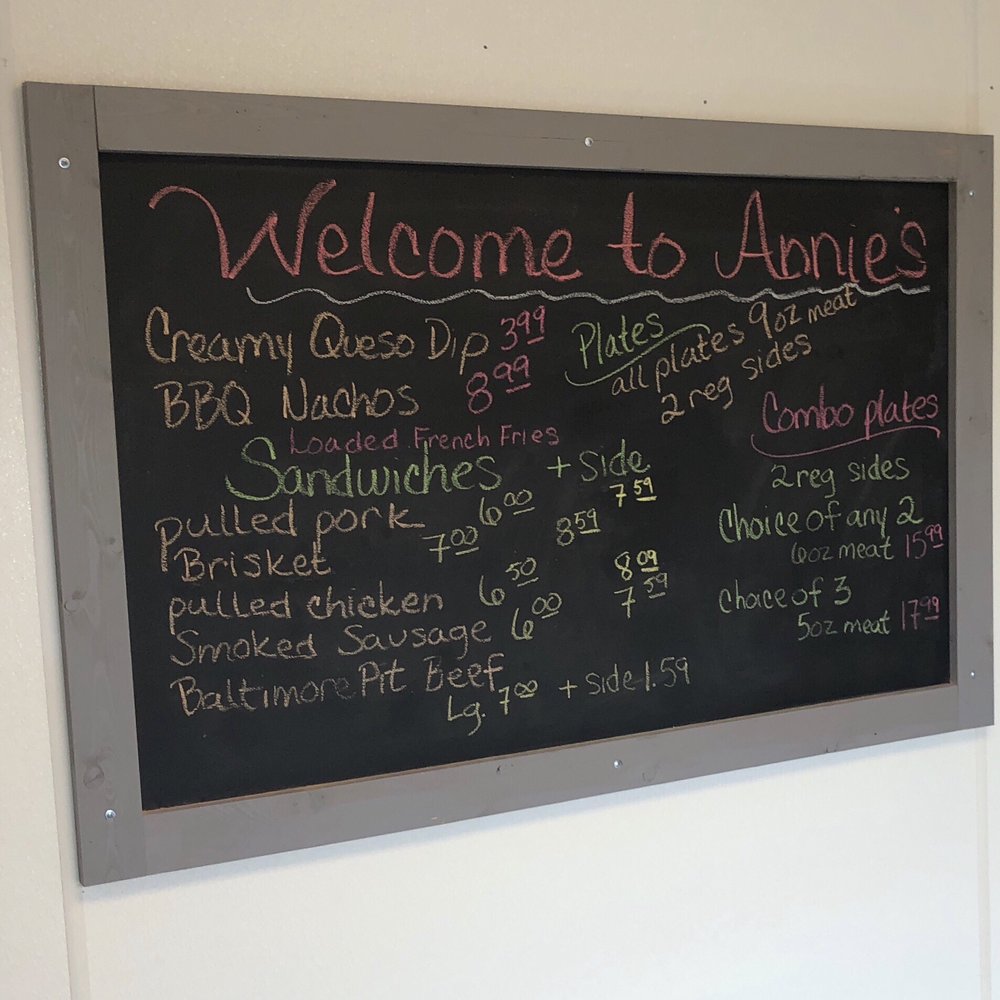 Welcome to Annie's
Creamy Queso Dip 3.99
BBQ Nachos 8.99
Loaded French Fries
Sandwiches + side
pulled pork 6.00 7.59
Brisket 7.00 8.59
pulled chicken 6.50 8.09
Smoked Sausage 6.00 7.59
Baltimore Pit Beef
Lg. 7.00 + side 1.59
Plates
all plates 9oz meat
2 reg sides
Combo plates
2 reg sides
Choice of any 2
6oz meat 15.99
Choice of 3
5oz meat 17.99